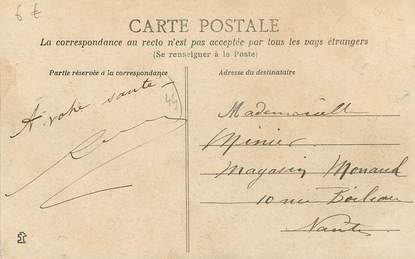 6 €
CARTE POSTALE
La correspondance au recto n'est pas acceptée par tous les pays étrangers
(Se renseigner à la Poste)
Partie réservée à la correspondance
Adresse du destinataire
A votre santé
44
Mademoiselle
Minier
Magasin Monaud
10 rue Boileau
Nantes